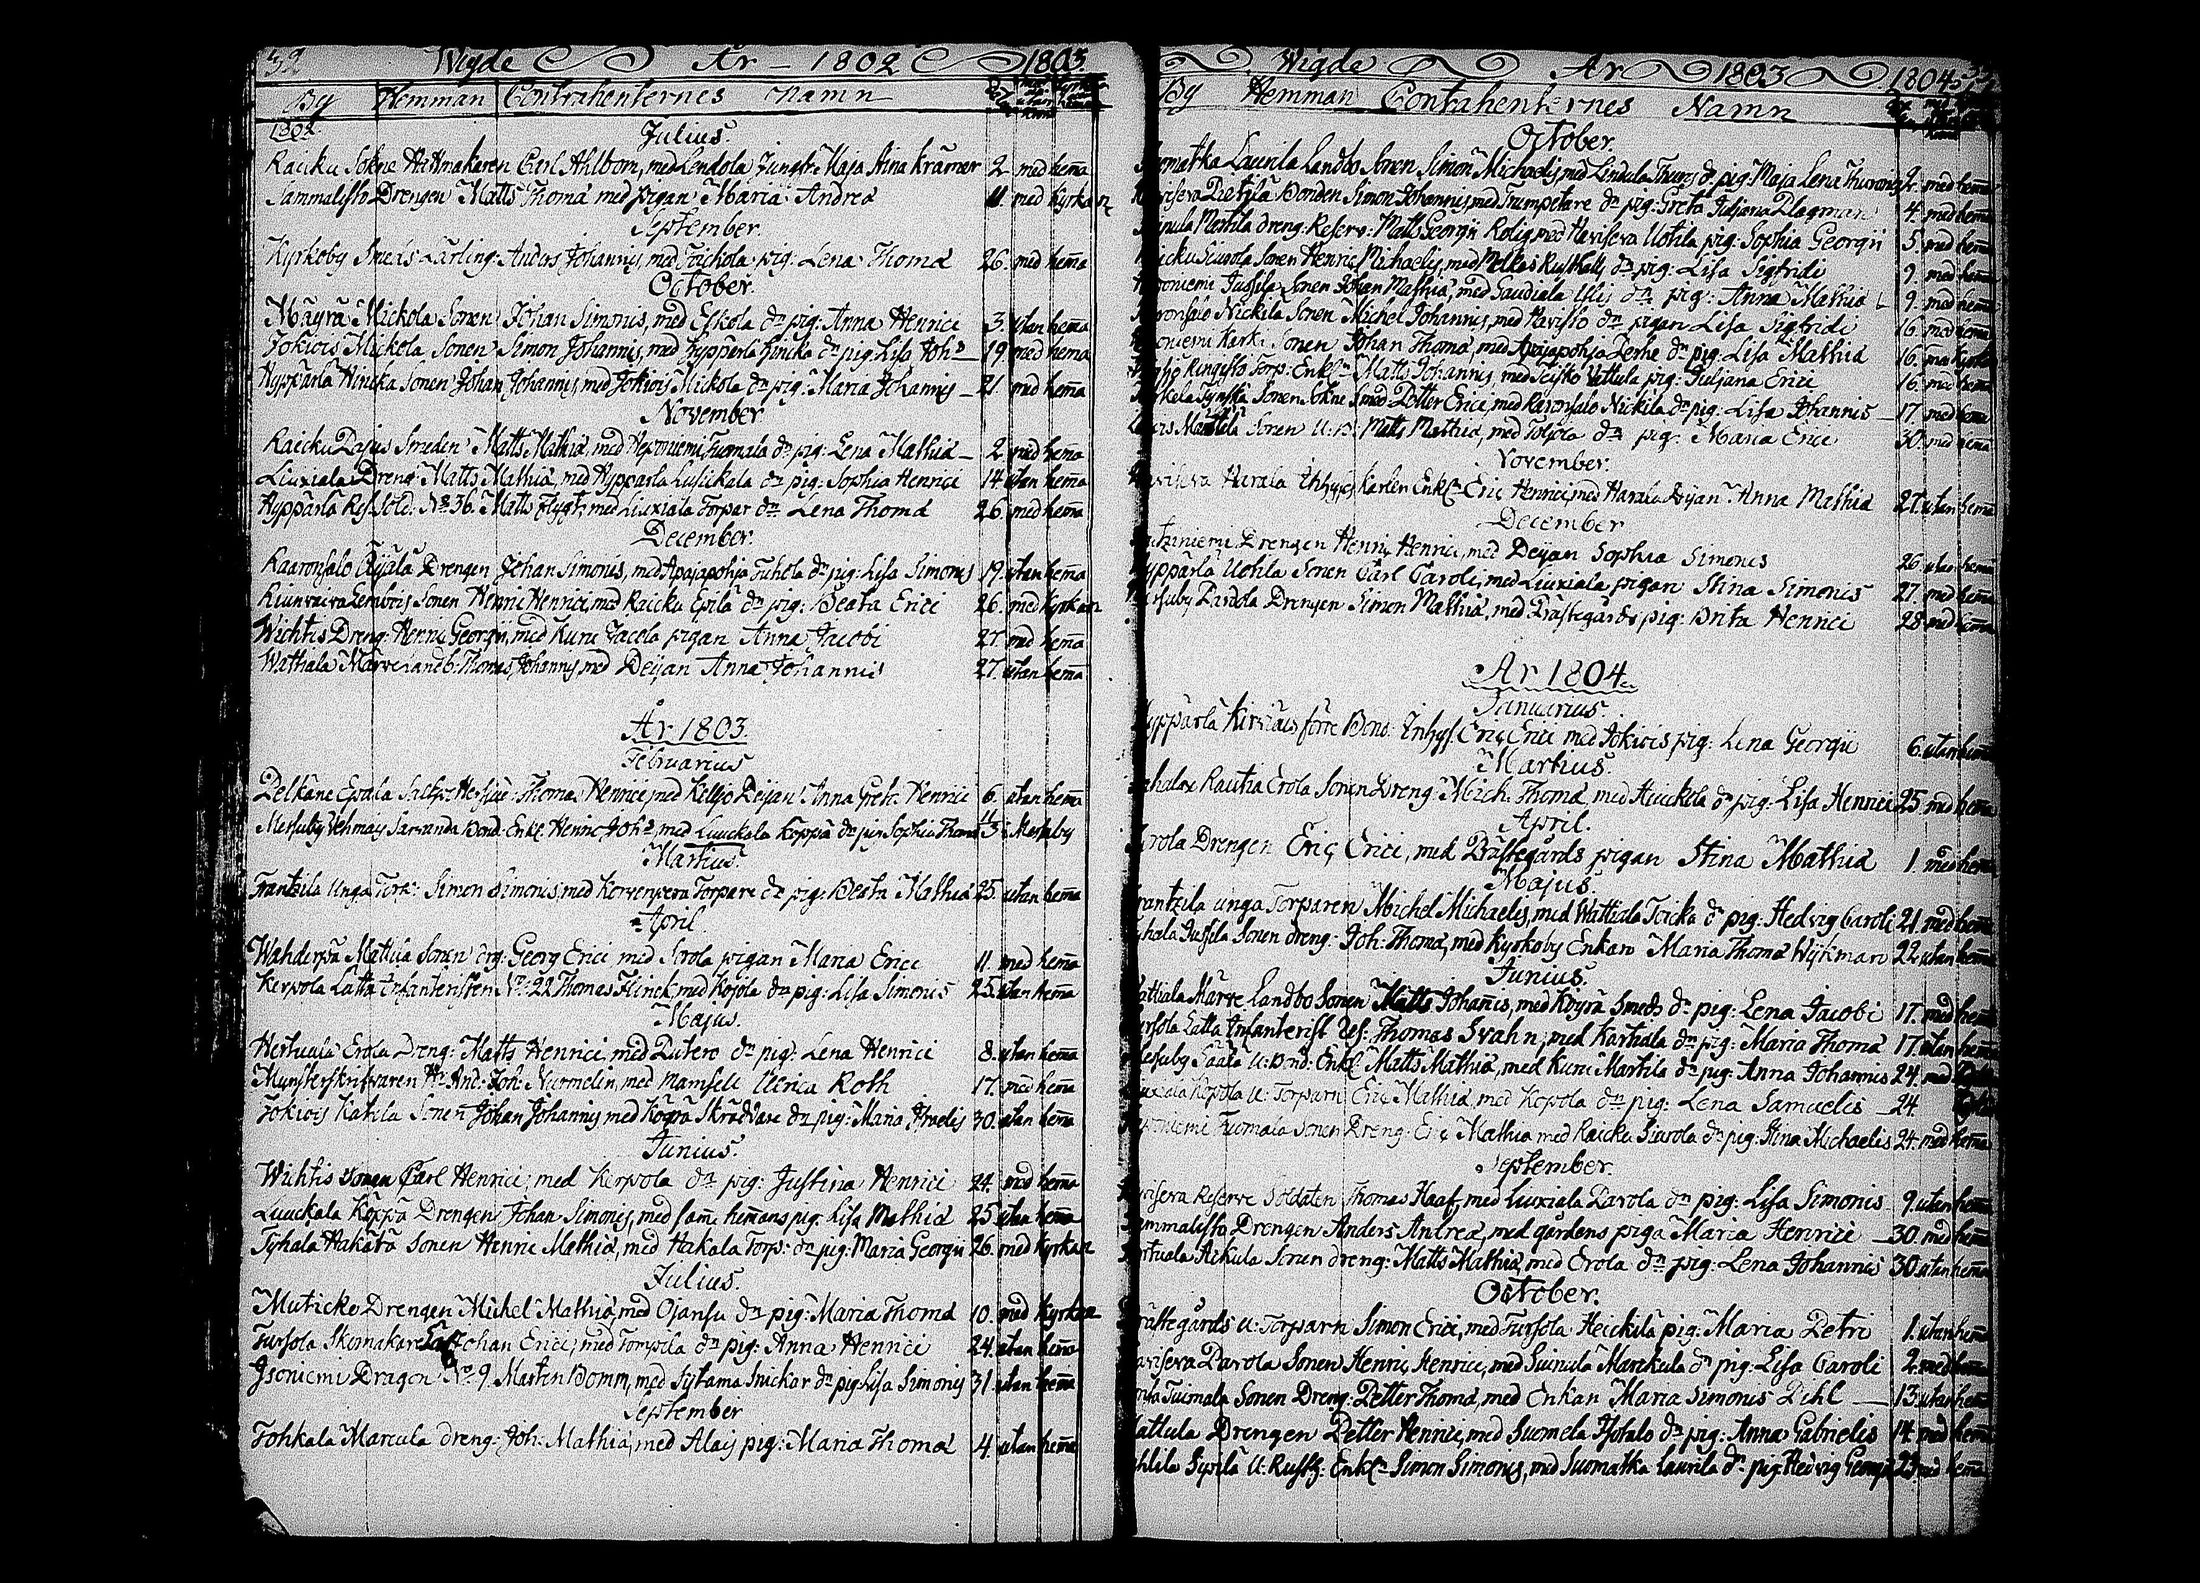 32 Wigde År - 1802 1803
By Hemman Contrahenternes Namn
1802.
Julius.
Raicku Sokne Hattmakaren Carl Ahlbom, med Lendola Jungfr: Maja Stina Krämer 2. med hem̄a
Sammalisto Drengen Matts Thomæ med pigan Maria Andreæ 11. med Kyrkan
September.
Kyrkoby Smeds Lärling: Anders Johannis, med Toickola pig: Lena Thomæ 26. med hem̄a
October.
Mäyrä Mickola Sonen Johan Simonis, med Eskola dr pig: Anna Henrici 3. utan hem̄a
Jokiois Mickola Sonen Simon Johannis, med Hyppärlä Hincka dr pig: Lisa Johs 19. med hema
Hyppärlä Hincka Sonen Johan Johannis, med Jokiois Mickola dr pig: Maria Johannis 21. med hema
November
Raicku Pajus Smeden Matts Mathiæ, med Heponiemi Tuomala dr pig: Lena Mathiæ 2. med hem̄a
Liuxiala Dreng: Matts Mathiæ, med Hyppärlä Lusickala dr pig: Sophia Henrici 14 utan hem̄a
Hyppärlä Res. Sold: No 36. Matts Flygt, med Liuxiala Torpar dr Lena Thomæ 26. med hem̄a
December.
Kaaronsalo Äijälä Drengen Johan Simonis, med Apajapohja Tuhola dr pig: Lisa Simonis 19. utan hem̄a
Riunvaiva Lembois Sonen Henric Henrici, med Raicku Epilä dr pig: Beata Erici 26. med Kyrkan
Wichtis Dreng: Henric Georgii, med Kune Jacola pigan Anna Jacobi 27. med hem̄a
Wathiala Märve Landb: Thomas Johannis, med Deijan Anna Johannis 27. utan hem̄a
År 1803.
Februarius
Pelkäne Epaala Henrici, med Deijan Anna Greta Henrici 6. utan hem̄a
Messuby Bond: Enkl. Henric Johs, med Luuckala Koppa dr pig: Sophia Thomæ 13 i Messuby
Martius.
Frantzila Unga Torp: Simon Simonis, med Korvenperä Torpare dr pig: Beata Mathiæ 25. utan hem̄a
April.
Wahderpä Mattila Sonen drg: Georg Erici med Sorola pigan Maria Erici 11. med hem̄a
Kerppola Latta Infanteristen No 22 Thomas Flinck, med Kojola dr pig: Lisa Simonis 25. utan hem̄a
Majus.
Herttuala Erola Dreng: Matts Henrici, med Putero dr pig: Lena Henrici 8. utan hem̄a
Mynsterskrifvaren Hr And: Joh: Nurmelin, med Mamsell Ulrica Roth 17. med hema
Jokiois Katila Sonen Johan Johannis med Köyrä Skräddare dr pig: Maria Israelis 30. utan hem̄a
Junius.
Wichtis Sonen Carl Henrici, med Kerppola dr pig: Justina Henrici 24. med hem̄a
Luuckala Koppa Drengen Johan Simonis, med sam̄e hem̄ans pig: Lisa Mathiæ 25 utan hem̄a
Tyhala Hakata Sonen Henric Mathiæ, med Hakala Torp: dr pig: Maria Georgii 26. med Kyrkan
Julius.
Muticko Drengen Michel Mathiæ, med Ojansu dr pig: Maria Thomæ 10. med Kyrkan
Tursola Skomakare Johan Erici, med Torppola dr pig: Anna Henrici 24. utan hem̄a
Isoniemi Dragon No 9. Mårten Bomm, med Sytama Snickar dr pig: Lisa Simonis 31. utan hem̄a
September
Tohkala Marcula dreng: Joh: Mathiæ, med Alais pig: Maria Thomæ 4. utan hem̄a
Wigde År 1803 1804
By Hemman Contrahenternes Namn
October.
Laurila Landbo Sonen Simon Michaelis, med Lindula dr pig: Maja Lena 2. med hem̄a
Pietila Bonden Simon Johannis, med Trumpetare dr pig: Greta Juljana Plagman 4. med hem̄a
Mattila dreng: Reserv: Matts Georgii Rolig med Havisева Uotila pig: Sophia Georgii 5. med hem̄a
Siurola Sonen Henric Michaelis, med Melkas Rusthåll dr pig: Lisa Sigfridi 9. med hem̄a
Jussila Sonen Johan Mathiæ, med Taudiala dr pig: Anna Mathiæ 9. med hem̄a
Nickila Sonen Michel Johannis, med Havisto dr pigan Lisa Sigfridi 16. med hem̄a
Karki Sonen Johan Thomæ, med Apajapohja Lerhe dr pig: Lisa Mathiæ 16. med Kyrkan
Torp: Enkl. Matts Johannis, med Vattula pig: Juljana Erici 16. med hem̄a
Sonen Sokne Smed Petter Erici, med Kaaronsalo Nickila dr pig: Lisa Johannis 17. med hem̄a
Mattila Sonen U: B: Matts Mathiæ, med Toljola dr pig: Maria Erici 30. med hem̄a
November.
Harala Inhyses karlen Enkl. Eric Henrici, med Harala Pijan Anna Mathiæ 27. utan hem̄a
December
Drengen Henric Henrici, med Deijan Sophia Simonis 26. utan hem̄a
Hyppärlä Uotila Sonen Carl Caroli, med Liuxiala pigan Stina Simonis 27. med hem̄a
Parola Drengen Simon Mathiæ, med Prästegårds pig: Brita Henrici 28. med hem̄a
År 1804.
Januarius.
Hyppärlä förre Bond: Inhys: Eric Erici med Jokiois pig: Lena Georgii 6. utan hem̄a
Martius.
Rautia Erola Sonen Dreng: Mich: Thomæ, med Heickola dr pig: Lisa Henrici 25. med hem̄a
April.
Sorola Drengen Eric Erici, med Prästegårds pigan Stina Mathiæ 1. med hem̄a
Majus.
Frantzila unga Torparen Michel Michaelis, med Wattiala Toicka dr pig: Hedvig Caroli 21. med hem̄a
Tyhala Jussila Sonen dreng: Joh: Thomæ, med Kyrkoby Enkan Maria Thomæ Wijkman 22. utan hem̄a
Junius.
Wattiala Märve Landbo Sonen Matts Johan̄is, med Köyrä Smeds dr pig: Lena Jacobi 17. med hem̄a
Latta Infanterist Res: Thomas Svahn, med Kartiala dr pig: Maria Thomæ 17. utan hem̄a
Messuby U: Bond: Enkl. Matts Mathiæ, med Kune Martila dr pig: Anna Johannis 24. med
U: Torparn Eric Mathiæ, med Kopola dr pig: Lena Samuelis 24.
Heponiemi Tuomala Sonen Dreng: Eric Mathiæ med Raicku Siurola dr pig: Stina Michaelis 24. med hem̄a
September.
Reserve Soldaten Thomas Haaf, med Liuxiala Parola dr pig: Lisa Simonis 9. utan hem̄a
Sammalisto Drengen Anders Andreæ, med gårdens piga Maria Henrici 30. med hem̄a
Herttuala Heikula Sonen dreng: Matts Mathiæ, med Erola dr pig: Lena Johannis 30. utan hem̄a
October.
Prästegårds U: Torparn Simon Erici, med Tursola Heickila pig: Maria Petri 1. utan hem̄a
Parola Sonen Henric Henrici, med Suinula Marckula dr pig: Lisa Caroli 2. med hem̄a
Tuimala Sonen Dreng: Petter Thomæ, med Enkan Maria Simonis Pihl 13. utan hem̄a
Drengen Petter Henrici, med Suomela Isotalo dr pig: Anna Gabrielis 14. med hem̄a
Sipilä U: Rusth: Enkl. Simon Simonis, med Suomatka Laurila dr pig: Hedvig Georgii 23. med hem̄a